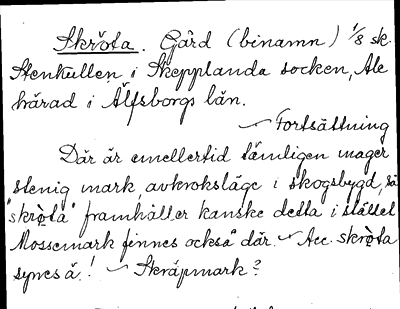 Skröta. Gård (binamn) 1/8 sk.
Stenkullen i Skepplanda socken, Ale
härad i Älfsborgs län.
✓ Fortsättning
Där är emellertid tämligen mager
stenig mark, avkroksläge i skogsbygd, så
"skröta" framhåller kanske detta i stället
Mossemark finnes också" där. ✓ Acc. skròta
synes å! ✓ Skräpmark?